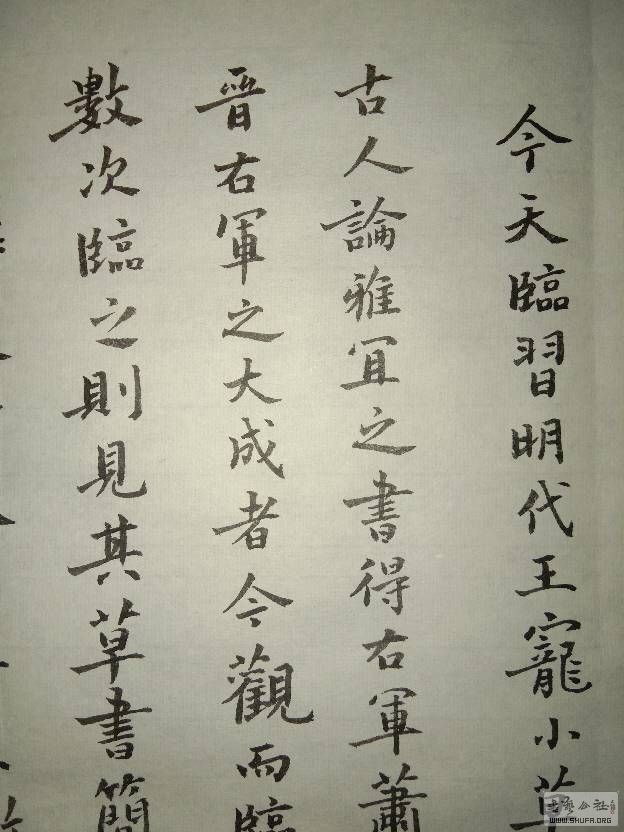 今天臨習明代王寵小草
古人論雅宜之書得右軍蕭
晉右軍之大成者今觀而臨
數次臨之則見其草書簡
WWW.SHUFA.ORG